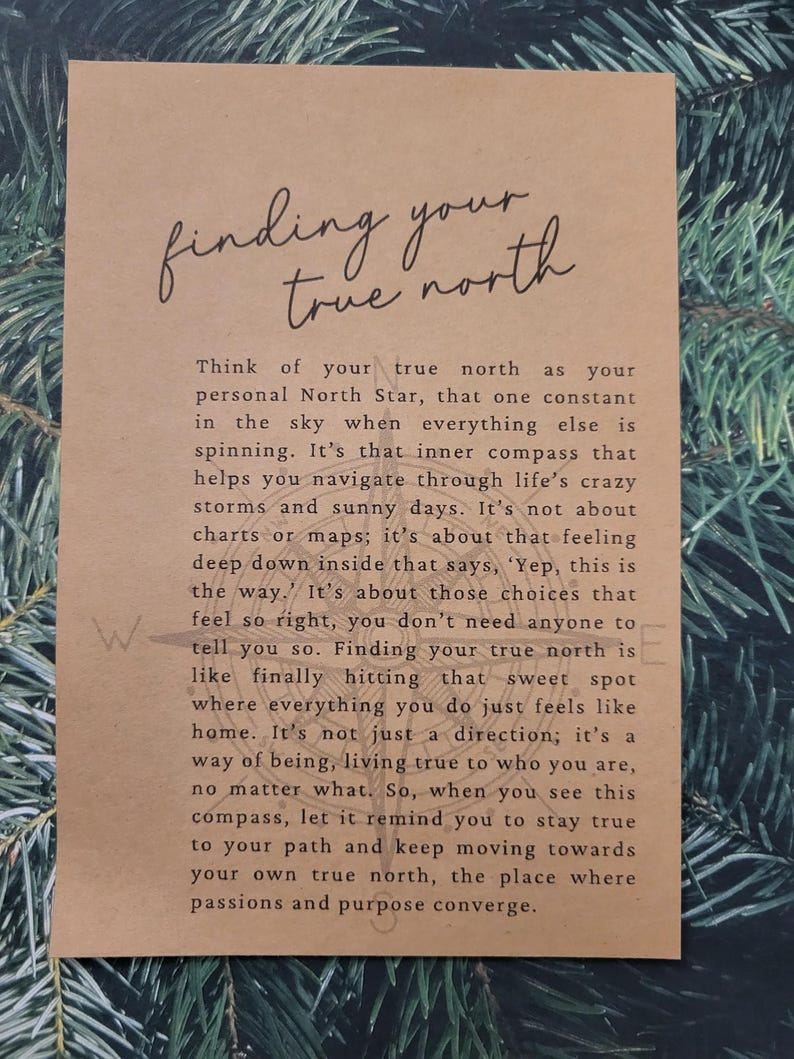 finding your
true north
N
Think of your true north as your
personal North Star, that one constant
in the sky when everything else is
spinning. It's that inner compass that
helps you navigate through life's crazy
storms and sunny days. It's not about
charts or maps; it's about that feeling
deep down inside that says, ‘Yep, this is
the way.’ It's about those choices that
feel so right, you don't need anyone to
W
E
tell you so. Finding your true north is
like finally hitting that sweet spot
where everything you do just feels like
home. It's not just a direction; it's a
way of being, living true to who you are,
no matter what. So, when you see this
compass, let it remind you to stay true
to your path and keep moving towards
your own true north, the place where
passions and purpose converge.
S